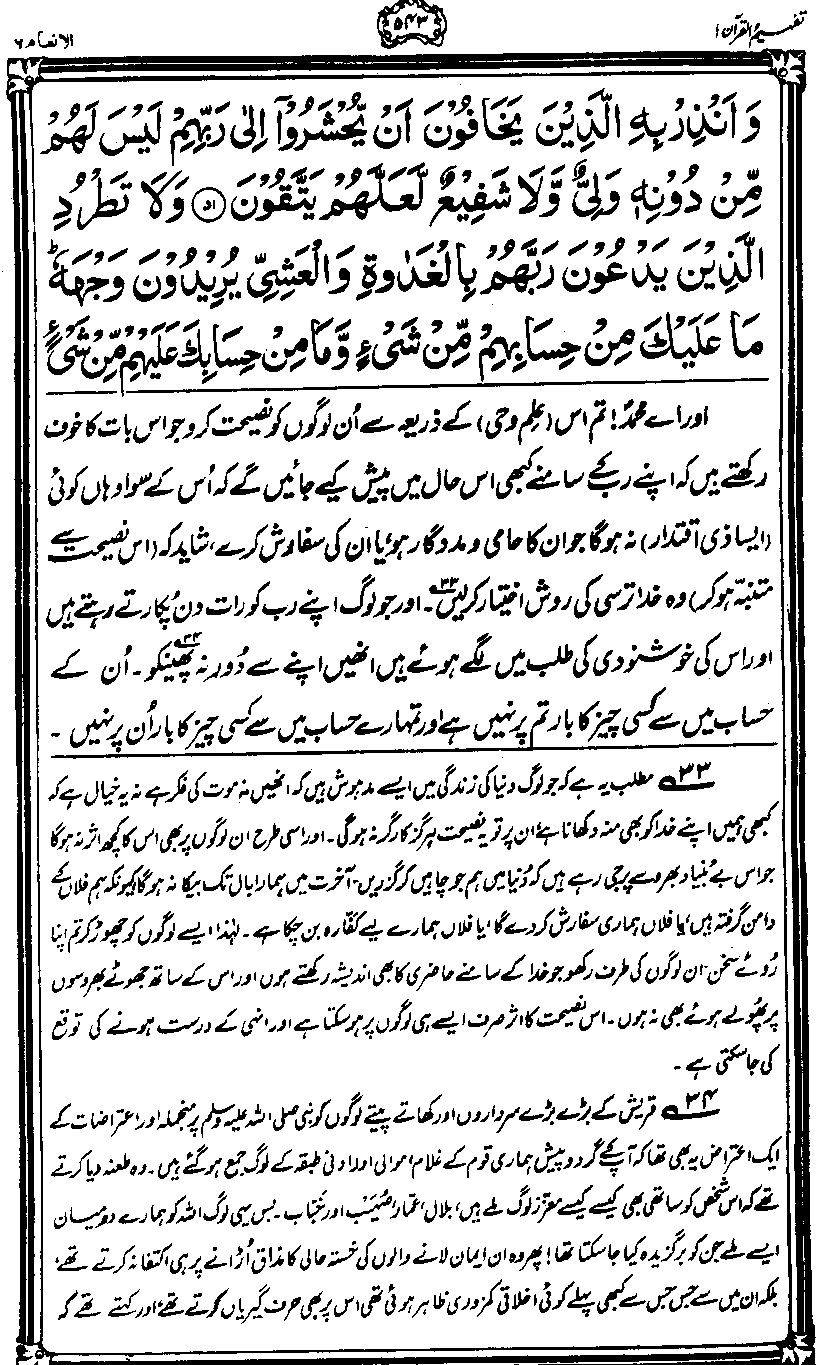 تفہیم القرآن ۱
۵۴۳
الانعام ۶
وَاَنْذِرْ بِهِ الَّذِيْنَ يَخَافُوْنَ اَنْ يُّحْشَرُوْٓا اِلٰى رَبِّهِمْ لَيْسَ لَهُمْ
مِّنْ دُوْنِهٖ وَلِيٌّ وَّلَا شَفِيْعٌ لَّعَلَّهُمْ يَتَّقُوْنَ ﴿۵۱﴾ وَلَا تَطْرُدِ
الَّذِيْنَ يَدْعُوْنَ رَبَّهُمْ بِالْغَدٰوةِ وَالْعَشِيِّ يُرِيْدُوْنَ وَجْهَهٗ ؕ
مَا عَلَيْكَ مِنْ حِسَابِهِمْ مِّنْ شَيْءٍ وَّمَا مِنْ حِسَابِكَ عَلَيْهِمْ مِّنْ شَيْءٍ
اور اے محمدؐ! تم اس (علمِ وحی) کے ذریعہ سے اُن لوگوں کو نصیحت کرو جو اس بات کا خوف
رکھتے ہیں کہ اپنے رب کے سامنے کبھی اس حال میں پیش کیے جائیں گے کہ اُس کے سوا وہاں کوئی
(ایسا ذی اقتدار) نہ ہوگا جو ان کا حامی و مددگار ہو، یا ان کی سفارش کرے، شاید کہ (اس نصیحت سے
متنبہ ہوکر) وہ خدا ترسی کی روش اختیار کرلیں۳۳۔ اور جو لوگ اپنے رب کو رات دن پکارتے رہتے ہیں
اور اس کی خوشنودی کی طلب میں لگے ہوئے ہیں انھیں اپنے سے دُور نہ پھینکو۳۴۔ اُن کے
حساب میں سے کسی چیز کا بار تم پر نہیں ہے اور تمہارے حساب میں سے کسی چیز کا بار اُن پر نہیں۔
۳۳ مطلب یہ ہے کہ جو لوگ دنیا کی زندگی میں ایسے مدہوش ہیں کہ انھیں نہ موت کی فکر ہے نہ یہ خیال ہے کہ
کبھی ہمیں اپنے خدا کو بھی منہ دکھانا ہے، ان پر تو یہ نصیحت ہرگز کارگر نہ ہوگی۔ اور اسی طرح ان لوگوں پر بھی اس کا کچھ اثر نہ ہوگا
جو اس بے بُنیاد بھروسے پر جی رہے ہیں کہ دُنیا میں ہم جو چاہیں کر گزریں، آخرت میں ہمارا بال تک بیکا نہ ہوگا کیونکہ ہم فلاں کے
دامن گرفتہ ہیں، یا فلاں ہماری سفارش کردے گا، یا فلاں ہمارے لیے کفّارہ بن چکا ہے۔ لہٰذا ایسے لوگوں کو چھوڑ کر تم اپنا
رُوئے سخن ان لوگوں کی طرف رکھو جو خدا کے سامنے حاضری کا بھی اندیشہ رکھتے ہوں اور اس کے ساتھ جھوٹے بھروسوں
پر پھُولے ہوئے بھی نہ ہوں۔ اس نصیحت کا اثر صرف ایسے ہی لوگوں پر ہوسکتا ہے اور انہی کے درست ہونے کی توقع
کی جاسکتی ہے۔
۳۴ قریش کے بڑے بڑے سرداروں اور کھاتے پیتے لوگوں کو نبی صلی اللہ علیہ وسلم پر منجملہ اور اعتراضات کے
ایک اعتراض یہ بھی تھا کہ آپ کے گرد و پیش ہماری قوم کے غلام، موالی اور ادنٰی طبقہ کے لوگ جمع ہوگئے ہیں۔ وہ طعنہ دیا کرتے
تھے کہ اس شخص کو ساتھی بھی کیسے کیسے معزز لوگ ملے ہیں، بلال، عمار، صُہَیب اور خبّاب۔ بس یہی لوگ اللہ کو ہمارے درمیان
ایسے ملے جن کو برگزیدہ کیا جاسکتا تھا! پھر وہ ان ایمان لانے والوں کی خستہ حالی کا مذاق اُڑانے پر ہی اکتفا نہ کرتے تھے،
بلکہ ان میں سے جس جس سے کبھی پہلے کوئی اخلاقی کمزوری ظاہر ہوئی تھی اس پر بھی حرف گیریاں کرتے تھے، اور کہتے تھے کہ